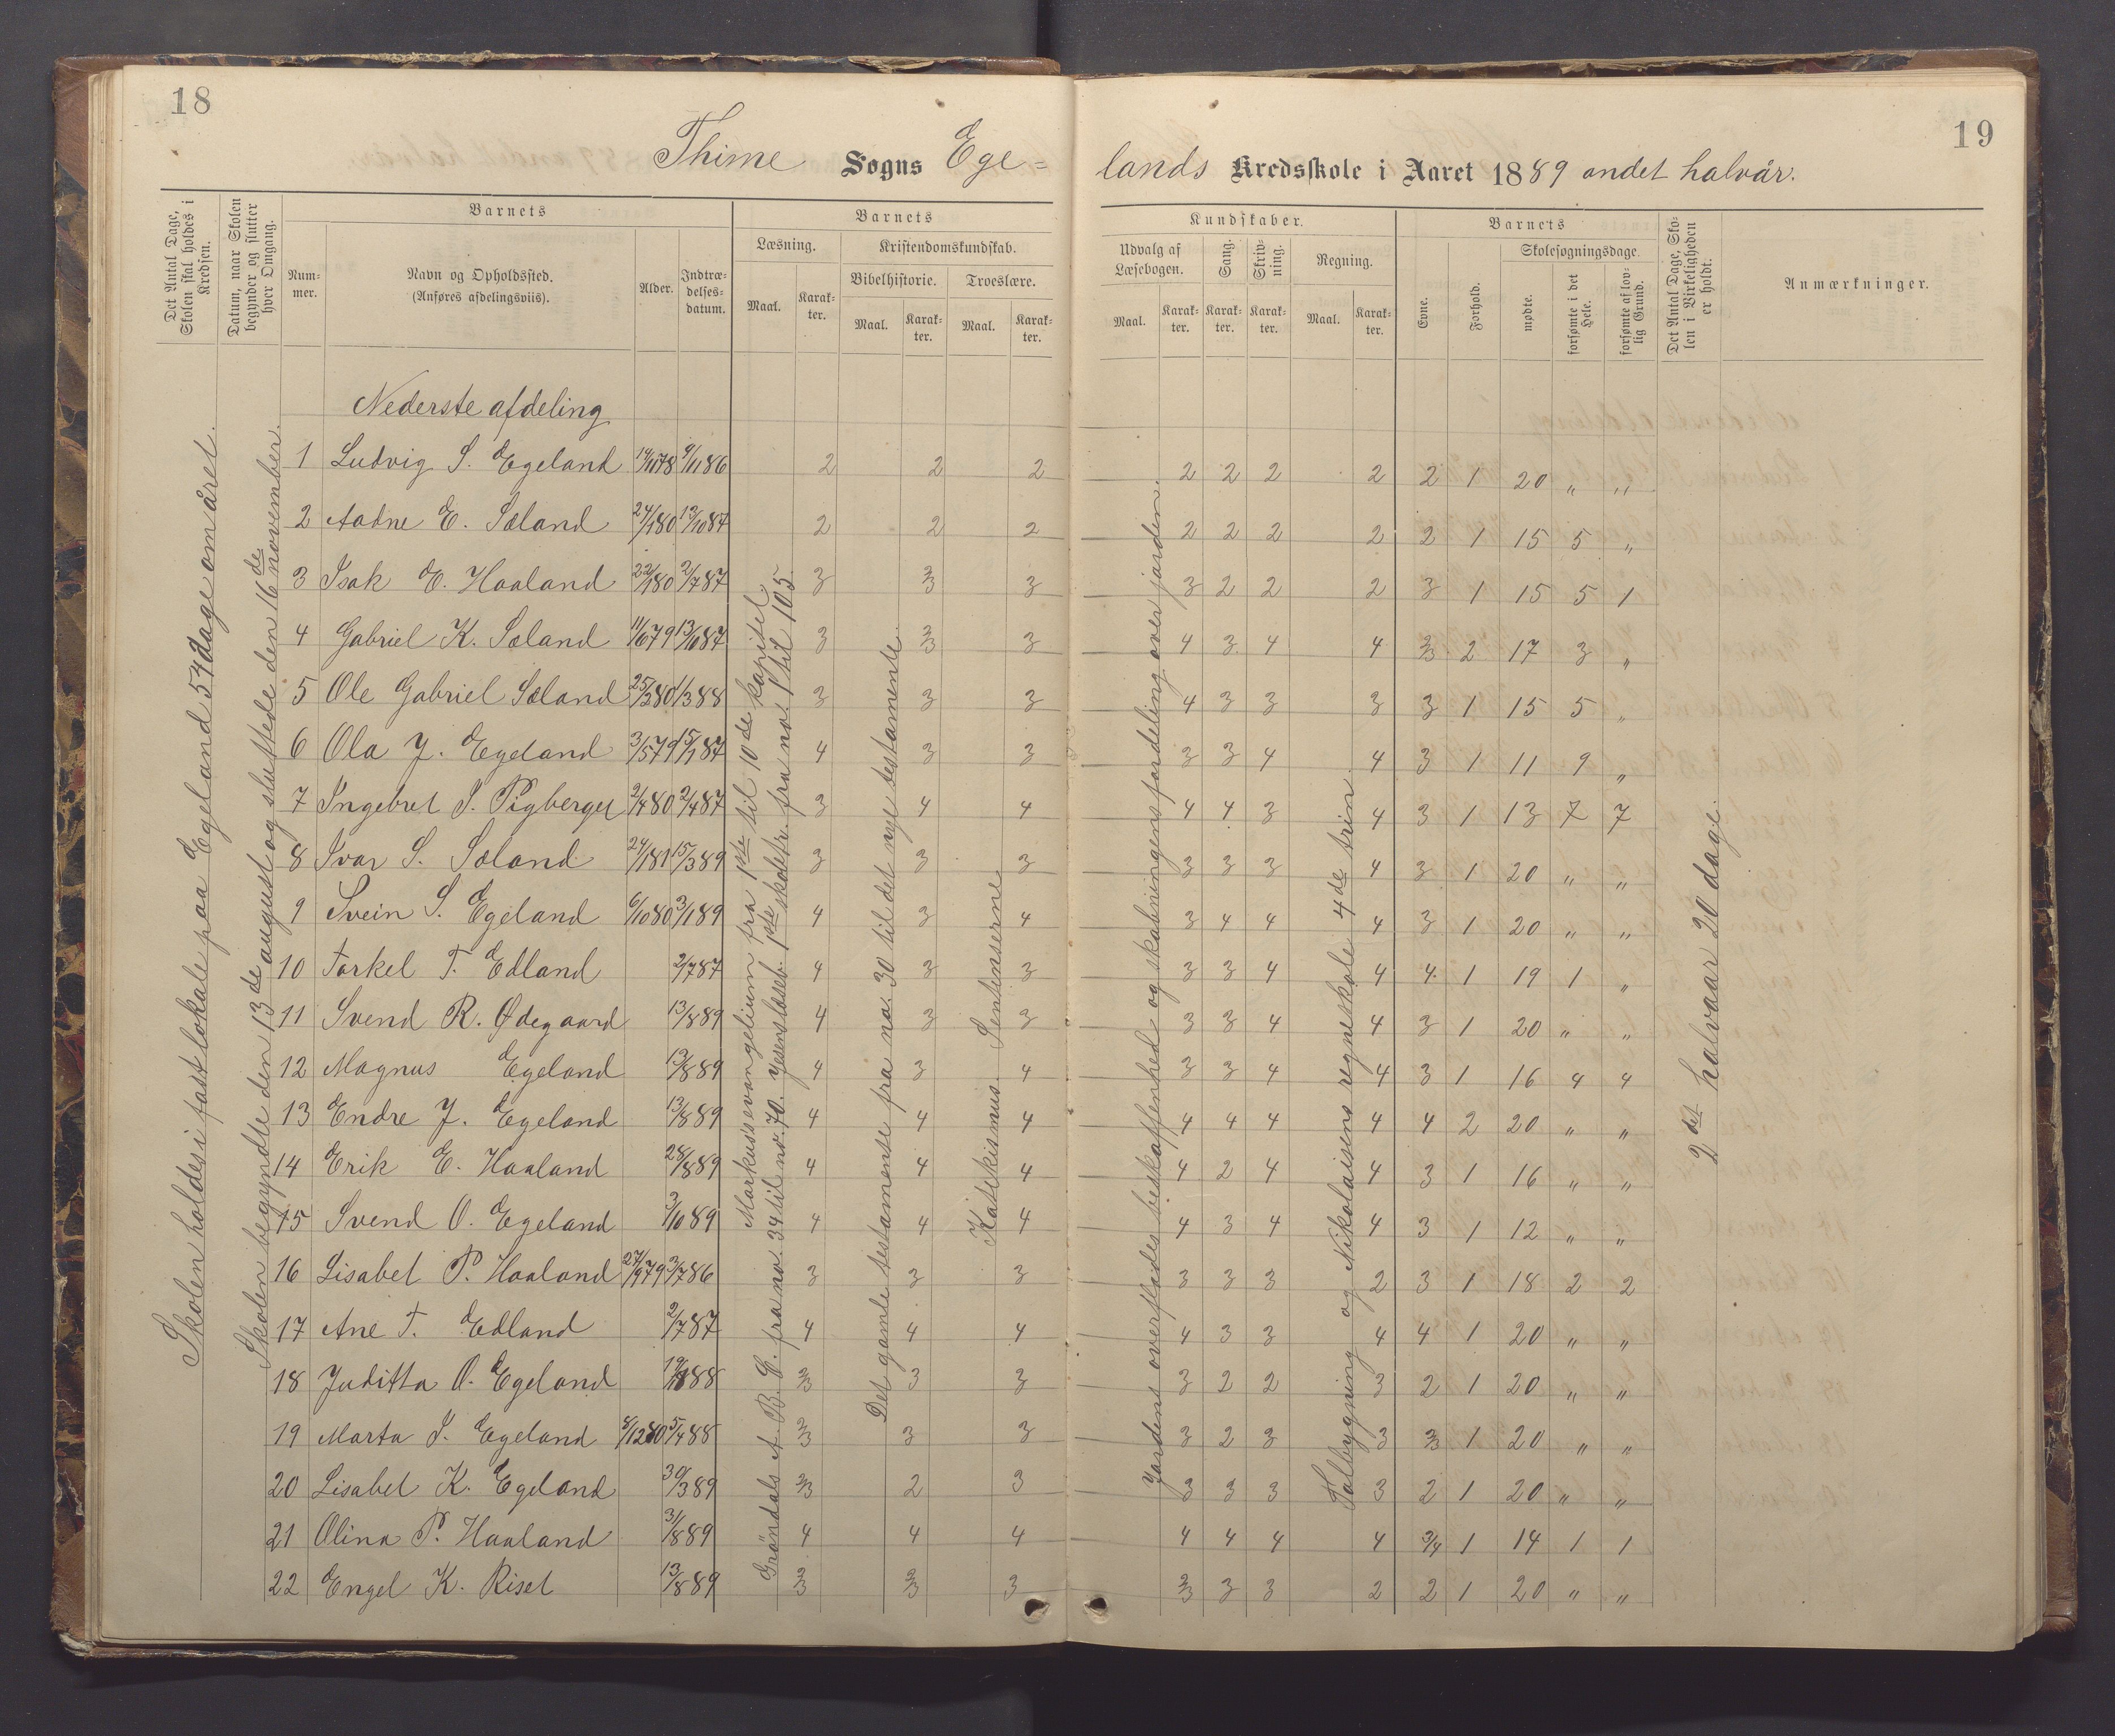 18
19
Thime Sogns Ege=
lands Kredsskole i Aaret 1889 andet halvår.
Det Antal Dage, Skolen skal holdes i Kredsen.
Datum, naar Skolen begynder og slutter hver Omgang.
Barnets
Num-mer.
Navn og Opholdssted.
(Anføres afdelingsviis).
Alder.
Indtræ-delses-datum.
Barnets
Læsning.
Kristendomskundskab.
Bibelhistorie.
Troeslære.
Maal. Karak-ter. Maal. Karak-ter. Maal. Karak-ter.
Kundskaber.
Udvalg af Læsebogen.
Sang.
Skriv-ning.
Regning.
Maal. Karak-ter. Karak-ter. Karak-ter. Maal. Karak-ter.
Barnets
Evne.
Forhold.
Skolesøgningsdage.
mødte.
forsømte i det Hele.
forsømte af lov-lig Grund.
Det Antal Dage, Sko-len i Virkeligheden er holdt.
Anmærkninger.
Skolen holdes i fast lokale paa Egeland 54 dage om året.
Skolen begyndte den 13de august og sluttede den 16de november.
Nederste afdeling
1 Ludvig S. Egeland 9/11 86 2 2 2 2 2 2 2 2 1 20 " "
2 Aadne E. Sæland 24/1 80 13/10 87 2 2 2 2 2 2 2 2 1 15 5 "
3 Isak E. Haaland 22/1 80 2/7 87 3 2/3 3 3 2 2 2 3 1 15 5 1
4 Gabriel K. Sæland 11/6 79 13/10 87 3 2/3 3 4 3 4 4 2/3 2 17 3 "
5 Ole Gabriel Sæland 25/3 80 1/3 88 3 3 3 4 3 3 3 3 1 15 5 "
6 Ola J. Egeland 3/5 79 15/1 87 4 3 3 3 3 4 4 3 1 11 9 "
7 Ingebret S. 2/4 80 2/4 87 3 4 4 4 4 3 4 3 1 13 7 7
8 Ivar S. Sæland 24/1 81 15/3 89 3 3 3 3 3 3 4 3 1 20 " "
9 Svein S. Egeland 6/10 80 3/1 89 4 3 4 3 4 4 4 3 1 20 " "
10 Torkel T. Edland 2/7 87 4 3 3 3 3 4 4 4 1 19 1 "
11 Svend R. Ødegaard 13/8 89 4 3 3 3 3 4 4 3 1 20 " "
12 Magnus Egeland 13/8 89 4 3 4 3 3 4 4 3 1 16 4 4
13 Endre J. Egeland 13/8 89 4 4 4 4 4 4 4 4 2 20 " "
14 Erik E. Haaland 28/8 89 4 4 4 4 2 4 4 3 1 16 " "
15 Svend O. Egeland 3/10 89 4 4 4 4 3 4 4 3 1 12 " "
16 Lisabet P. Haaland 27/9 79 3/7 86 3 3 3 3 3 3 2 3 1 18 2 2
17 Ane T. Edland 2/7 87 4 4 4 4 3 3 4 4 1 20 " "
18 Juditta O. Egeland 2/3 3 3 3 2 2 3 2 1 20 " "
19 Marta S. Egeland 8/12 80 5/4 88 2/3 3 3 3 2 3 3 2/3 1 20 " "
20 Lisabet K. Egeland 30/3 89 2/3 2 3 3 3 3 3 2 1 20 " "
21 Olina P. Haaland 31/8 89 4 4 4 4 4 4 4 3/4 1 14 1 1
22 Engel K. Riset 13/8 89 2/3 2/3 3 2/3 3 3 2 2 1 20 " "
Markus's evangelium fra 1ste til 10de kapitel
Grøndals A B C. fra no. 34 til no. 70. Jensens læseb. 1ste skoletrin fra no. 1 til 105.
Det gamle testamente fra no. 30 til det nye testamente.
Katekismus. Sentenserne
Jordens overflades beskaffenhed og skabningens fordeling over jorden.
Talbygning og Nikolaisens regneskole 4de trin.
2det halvaar 20 dage.